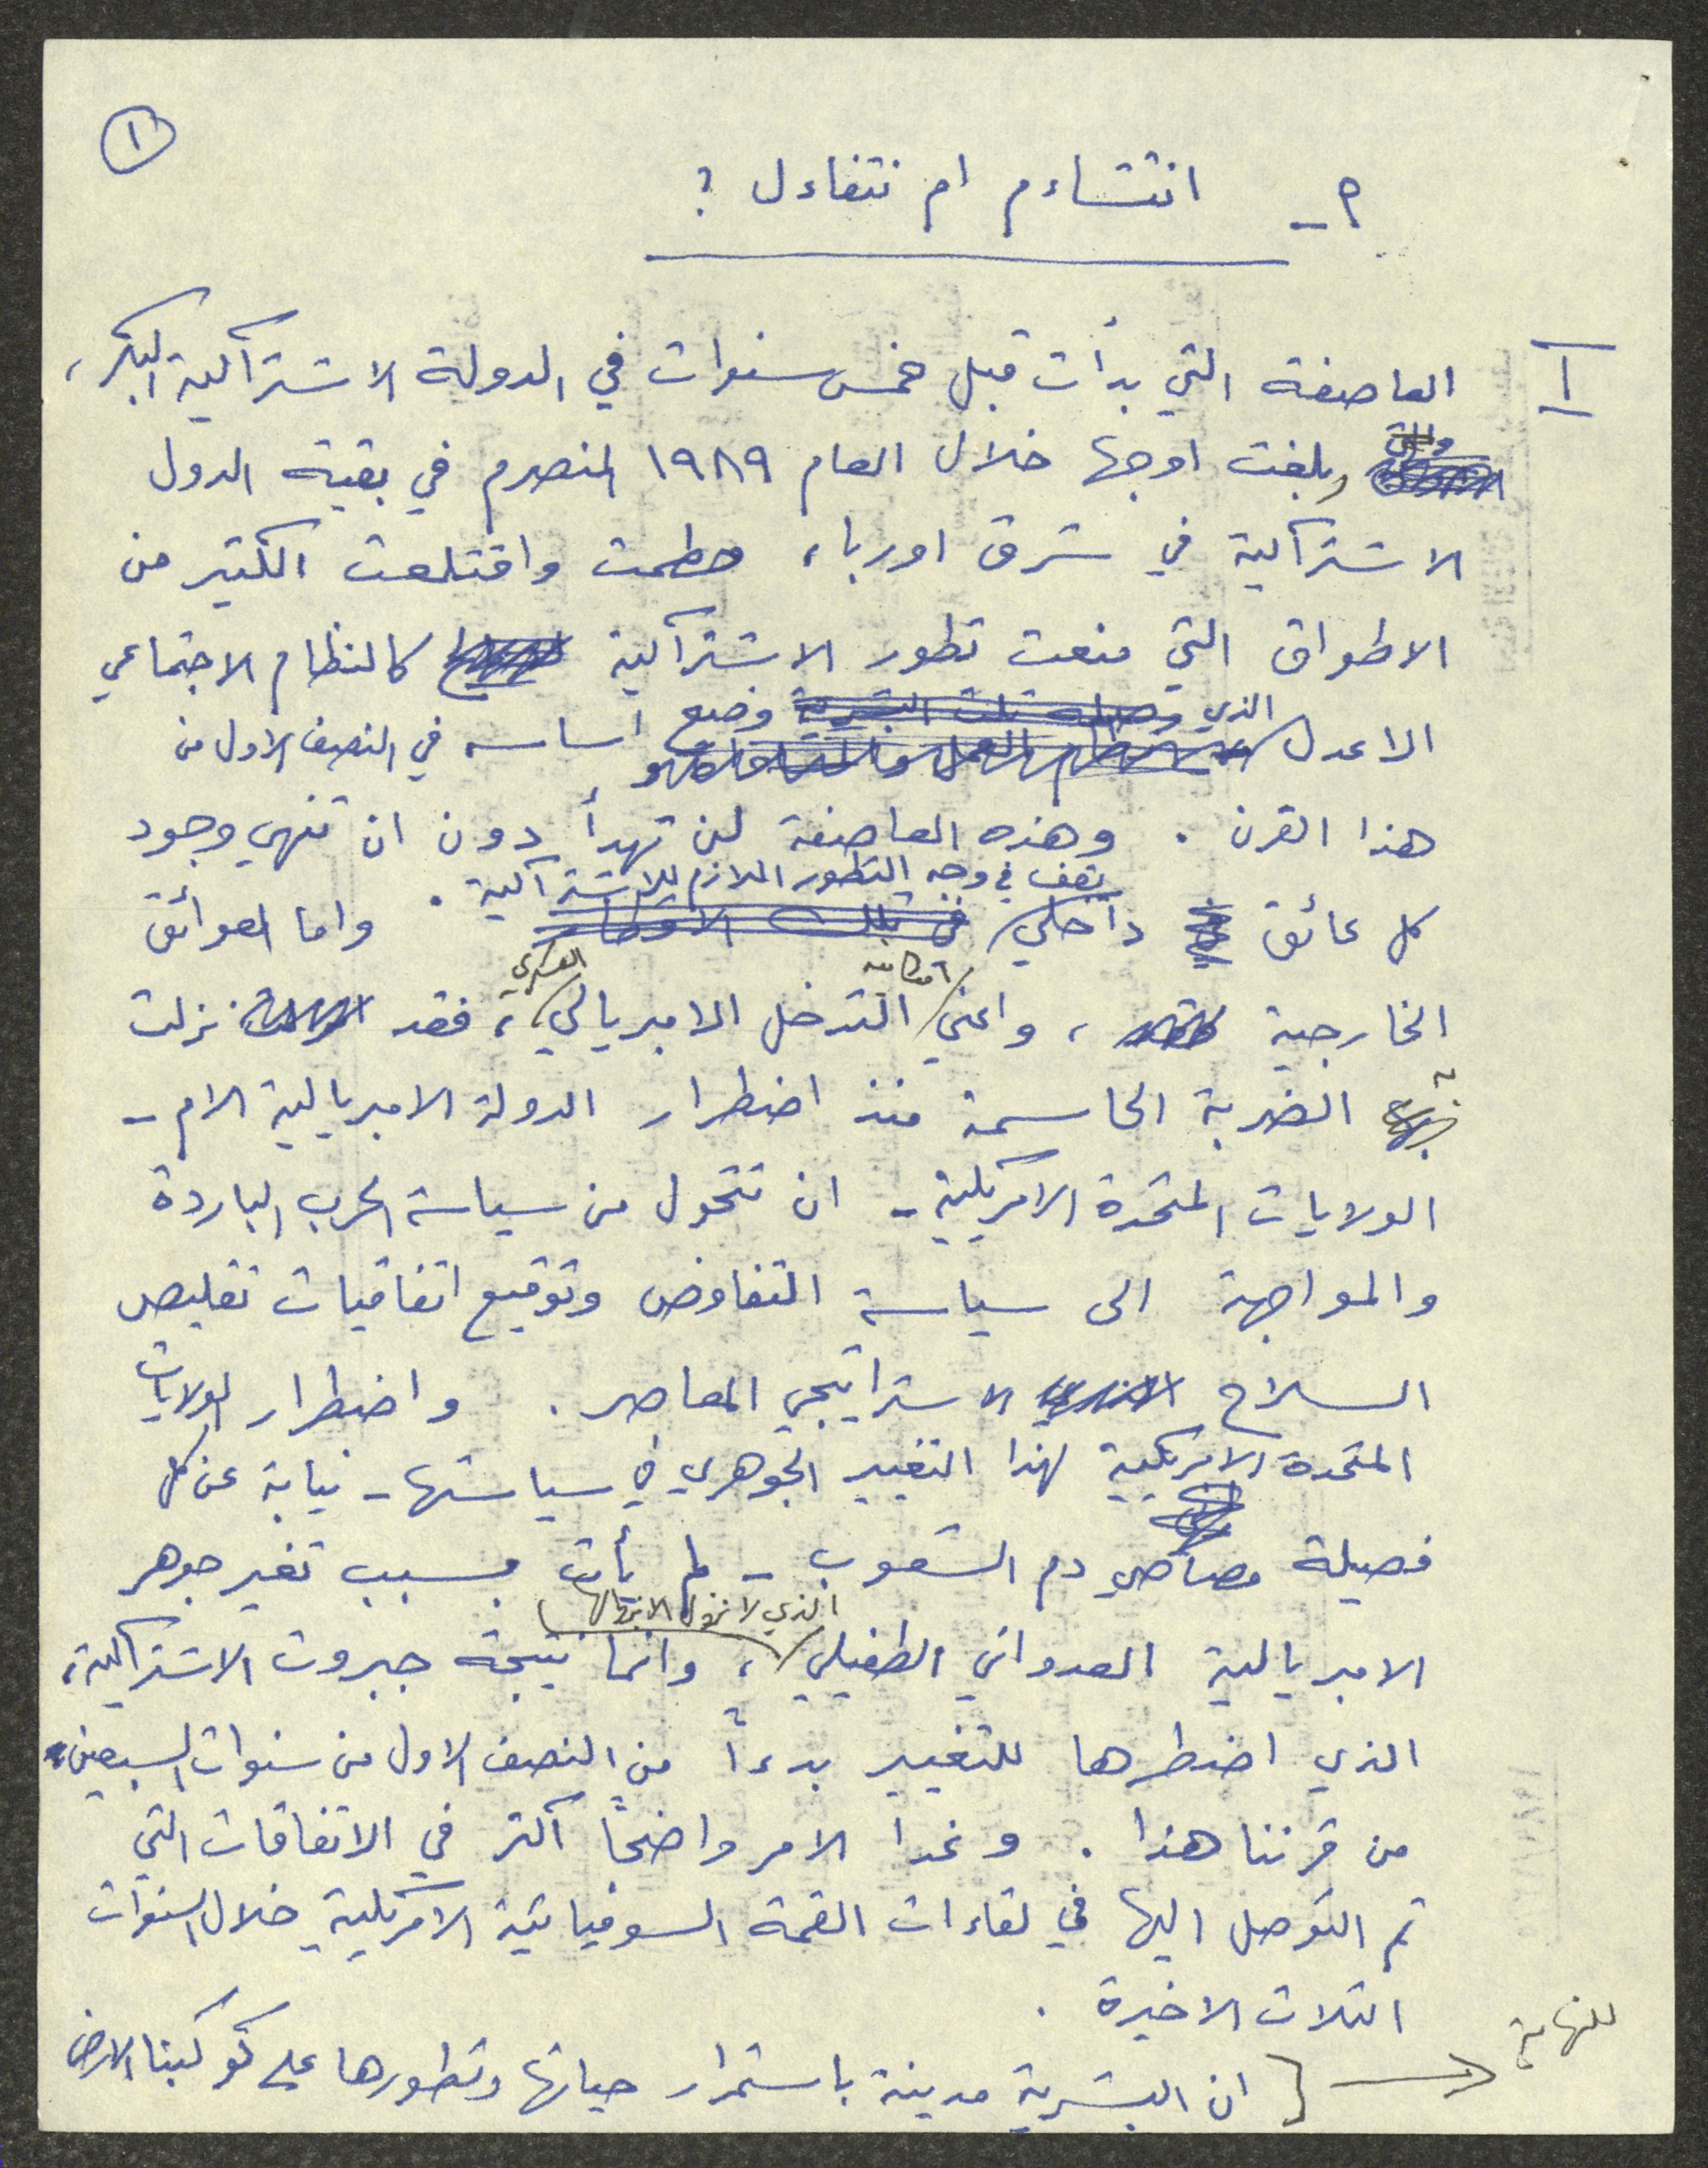 ١
م - انتشاءم ام نتفاءل ؟
I العاصفة التي بدأت قبل خمس سنوات في الدولة الاشتراكية البكر،
وبلغت اوجها خلال العام ١٩٨٩ المنصرم في بقية الدول
الاشتراكية في شرق اوربا، حطمت واقتلعت الكثير من
الاطواق التي منعت تطور الاشتراكية كالنظام الاجتماعي
الاعدل الذي وضع اساسه في النصف الاول من
هذا القرن . وهذه العاصفة لن تهدأ دون ان تنهي وجود
كل عائق داخلي يقف في وجه التطور اللازم للاشتراكية . واما العوائق
الخارجية ، واعني امكانية التدخل الامبريالي العسكري ، فقد نزلت
به الضربة الحاسمة منذ اضطرار الدولة الامبريالية الام -
الولايات المتحدة الامريكية - ان تتحول من سياسة الحرب الباردة
والمواجهة الى سياسة التفاوض وتوقيع اتفاقيات تقليص
السلاح الاستراتيجي المعاصر . واضطرار الولايات
المتحدة الامريكية لهذا التغيير الجوهري في سياستها - نيابة عن كل
فصيلة مصاصي دم الشعوب - لم يأت بسبب تغير جوهر
الامبريالية العدواني الطفيلي ، وانما نتيجة جبروت الاشتراكية،
الذي اضطرها للتغيير بدءاً من النصف الاول من سنوات السبعين
من قرننا هذا . وغدا الامر واضحاً اكثر في الاتفاقات التي
تم التوصل اليها في لقاءات القمة السوفياتية الامريكية خلال السنوات
الثلاث الاخيرة .
للنهاية
ان البشرية مدينة باستمرار حياتها وتطورها على كوكبنا الارض